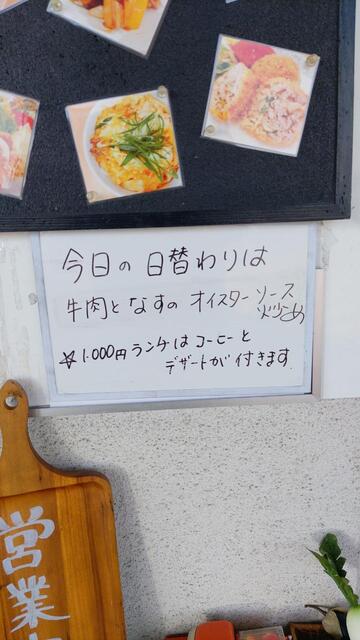 今日の日替わりは
牛肉となすのオイスターソース
炒め
☆1.000円ランチはコーヒーと
デザートが付きます
営業